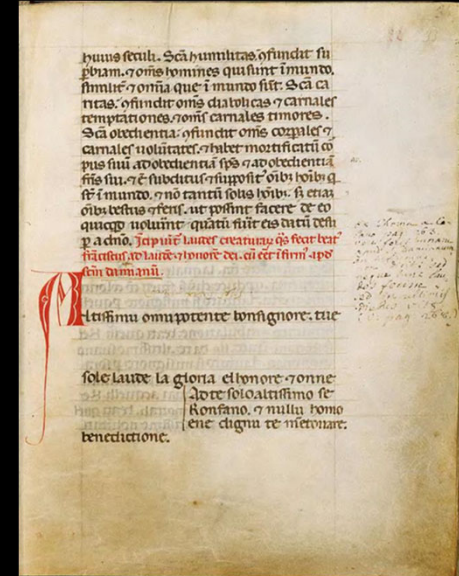 huius seculi. Scã humilitas ꝯfundit su
ꝑbiam. ⁊ om̃s homines qui sunt ĩ mundo.
similit̃ ⁊ om̃ia que ĩ mundo sũt. Scã ca
ritas. ꝯfundit om̃s diabolicas ⁊ carnales
temptationes. ⁊ om̃s carnales timores.
Scã obedientia. ꝯfundit om̃s corꝑales ⁊
carnales volũtates. ⁊ habet mortificatũ co
pus suũ ad obedientiã sp̃s ⁊ ad obedientiã
fr̃is sui. ⁊ ẽ subditus ⁊ suppositꝰ oĩbꝫ hoĩbꝫ q̃
sũt ĩ mundo. ⁊ nõ tantũ solis hoĩbꝫ. sꝫ etiaꝫ
oĩbꝫ bestiis ⁊ feris. ut possint facere de eo
quicqd voluĩnt quãtũ fũit eis datũ desu
ꝑ a dño. Icipiũt laudes creaturaꝝ q̃s fecit beatꝰ
frãciscus ad laudẽ ⁊ honorẽ dei. cũ eẽt ĩfirmꝰ apd̃
scm̃ damianũ.
Altissimu omnipotente bonsignore. tue
sole laude la gloria elhonore ⁊ onne
Ad te solo altissimo se
Konfano. ⁊ nullu homo
ene dignu te mentouare.
benedictione.